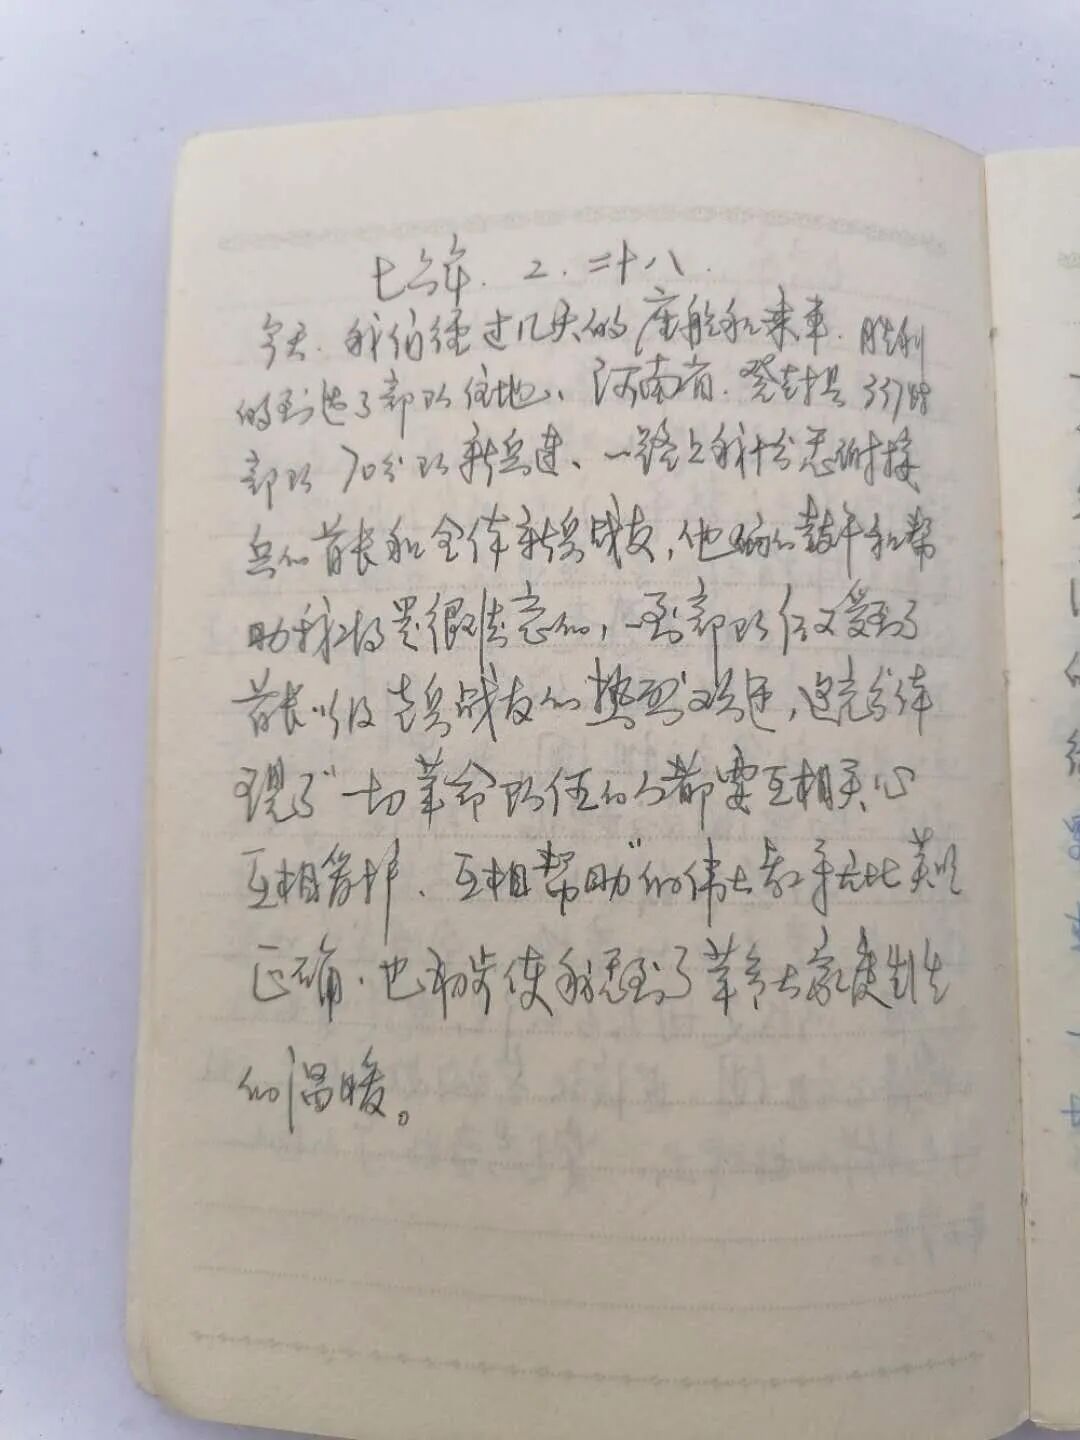 七六年.2.二十八.
今天.我们经过几天的座船和乘车.胜利
的到达了部队住地、河南省.县
部队70分队新兵连、一路上我十分感谢接
兵的首长和全体新兵战友,他们的鼓午和帮
助我是很难忘的,一到部队后又受到了
首长以及老兵战友的热烈欢迎,这充分体
现了“一切革命队伍的人都要互相关心
互相爱护、互相帮助”的伟大教导无比英明
正确.也初步使我感到了革命大家庭
的温暖。